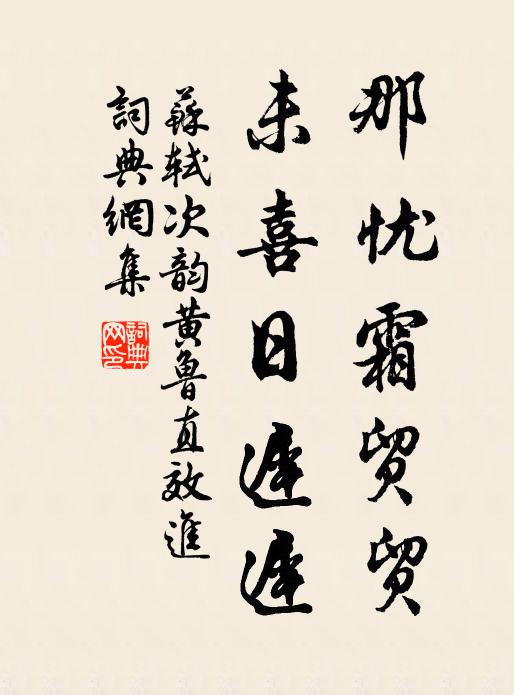 那忧霜贸贸
未喜日遲遲
蘇轼次韵黄鲁直效進
詞典網集
詞典网印